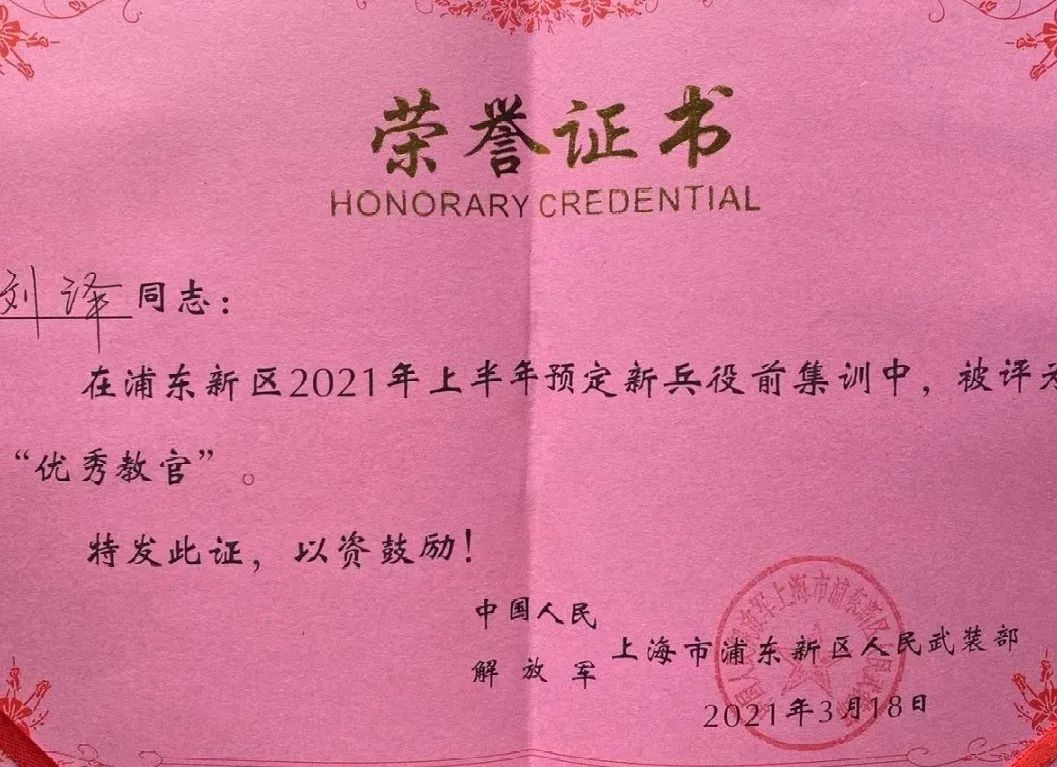 荣誉证书
HONORARY CREDENTIAL
刘泽同志：
在浦东新区2021年上半年预定新兵役前集训中，被评为
“优秀教官”。
特发此证，以资鼓励！
中国人民
解放军
上海市浦东新区人民武装部
2021年3月18日